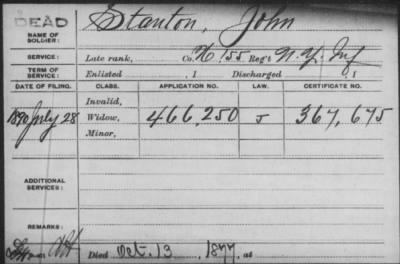 DEAD
NAME OF SOLDIER: Stanton, John
SERVICE: Late rank, Co. H, 155 Reg't N.Y. Inf
TERM OF SERVICE: Enlisted , 1 Discharged , 1
DATE OF FILING. CLASS. APPLICATION NO. LAW. CERTIFICATE NO.
Invalid,
1890 July 28 Widow, 466,250 J 367,675
Minor,
ADDITIONAL SERVICES:
REMARKS:
Died Oct. 13, 1877, at